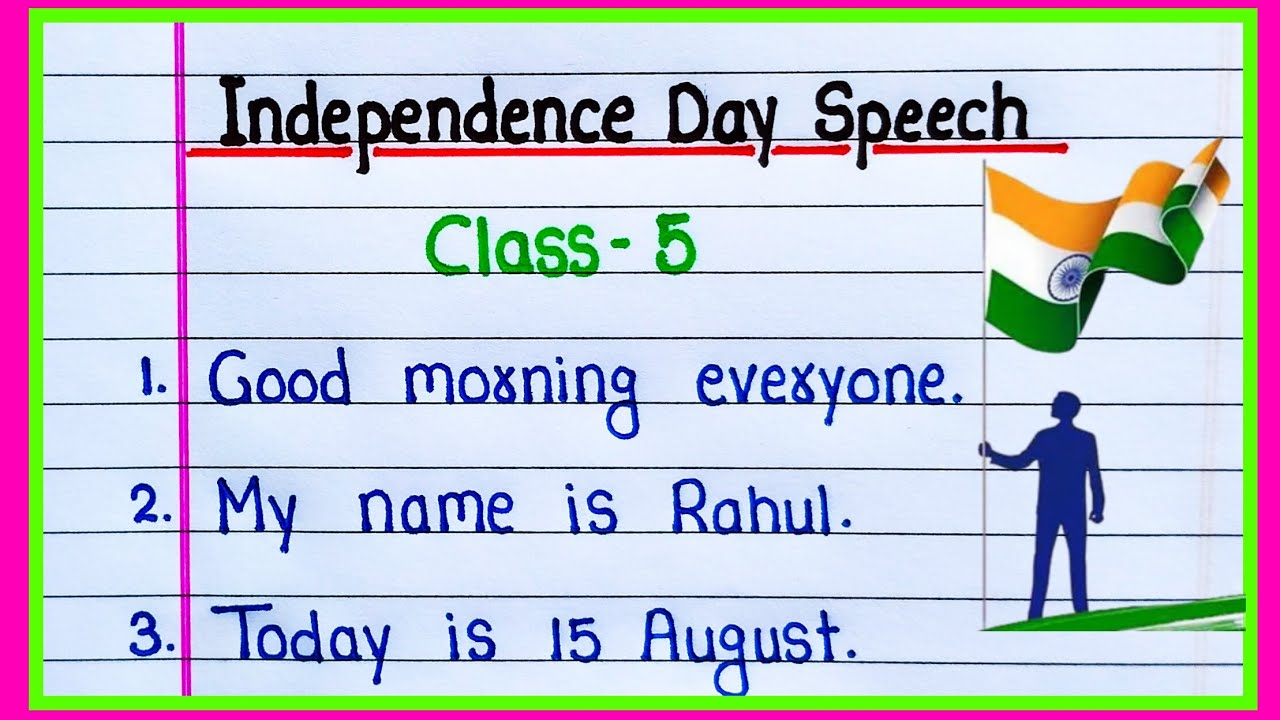 Independence Day Speech
Class - 5
1. Good morning everyone.
2. My name is Rahul.
3. Today is 15 August.